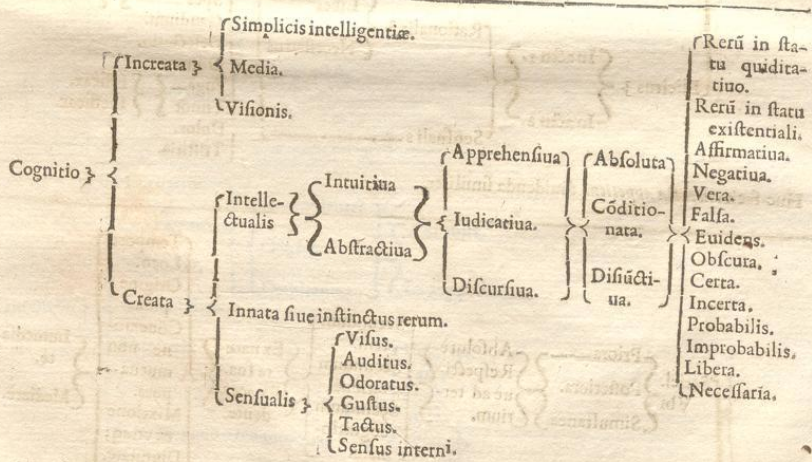 Cognitio
Increata
Simplicis intelligentiæ.
Media.
Viſionis.
Creata
Intelle-
ctualis
Intuitiua
Abſtractiua
Apprehenſiua
Iudicatiua.
Diſcurſiua.
Abſoluta
Cõditio-
nata.
Diſiũcti-
ua.
Rerũ in ſta-
tu quidita-
tiuo.
Rerũ in ſtatu
exiſtentiali.
Affirmatiua.
Negatiua.
Vera.
Falſa.
Euidens.
Obſcura.
Certa.
Incerta.
Probabilis.
Improbabilis.
Libera.
Neceſſaria.
Innata ſiue inſtinctus rerum.
Senſualis
Viſus.
Auditus.
Odoratus.
Guſtus.
Tactus.
Senſus interni.